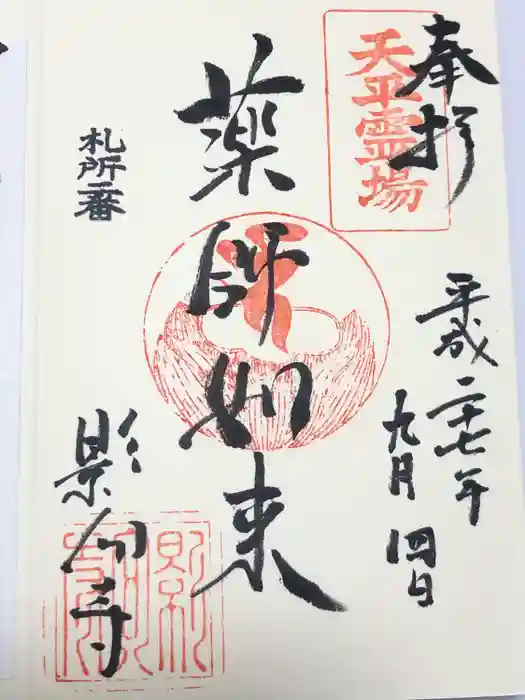 奉拝
天平霊場
平成二十七年
九月四日
薬師如来
札所二番
影向寺